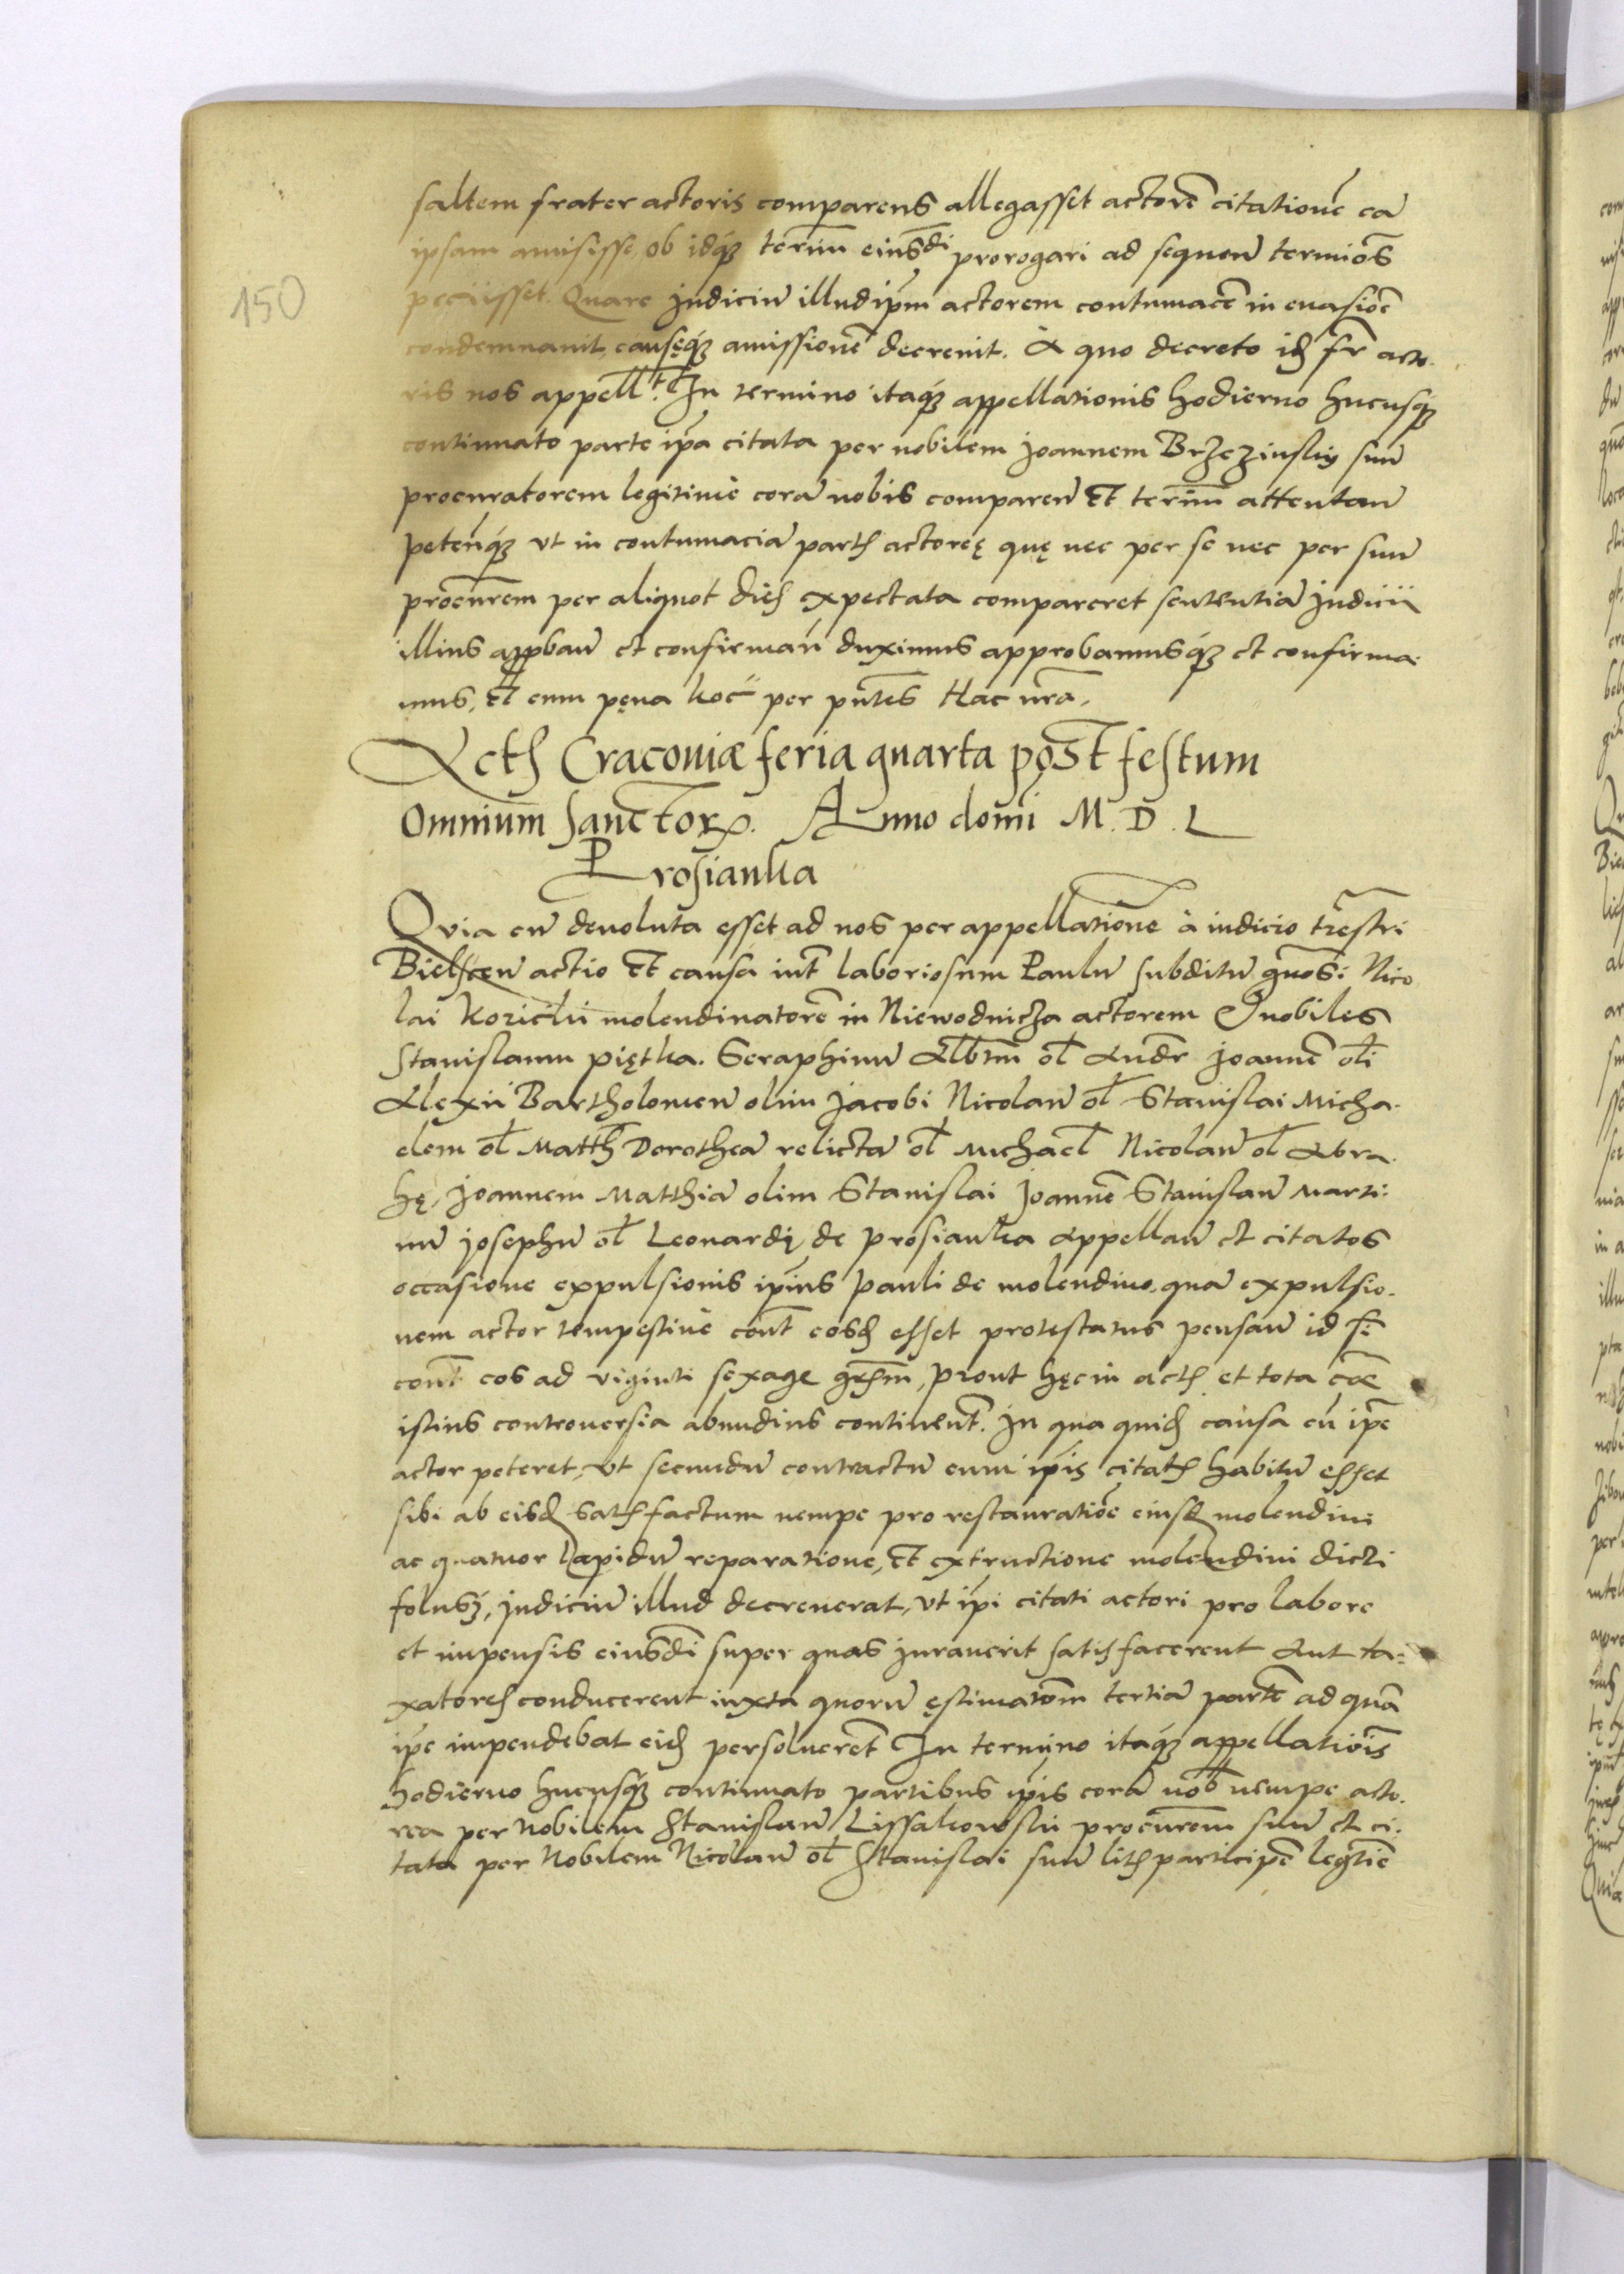 150
saltem frater actoris comparens allegasset actorē citationē eā
ipsam amisisse, ob idq́ʒ term̄ eiusdi prorogari ad sequen̄ termiōs
peciisset. Quare Judiciū illud ip̄m actorem contumacē in euasiōe
condemnauit, causęq́ʒ amissionē decreuit. A quo decreto id̄ fr̄ acto.
ris nos appell.t In termino itaq́ʒ appellationis hodierno hucusqʒ
continuato parte ip̄a citata per nobilem Joannem Brzezinsky suū
procuratorem legitimè corā nobis comparen̄ Et term̄ attentan̄
peten̄q́ʒ vt in contumaciā partis actoreę quę nec per se nec per suū
procur̄em per aliquot dies expectata compareret sententiā Judicii
illius appban̄ et confirman̄ duximus approbamusq́ʒ et confirma.
mus, Et cum pęna koc̄ per pn̄tes Hac nr̄a.
Actis Cracoviæ feria quarta post festum
Omnium sanctorꝝ. Anno domī M. D. L
Prosianka
Qvia cū deuoluta esset ad nos per appellationē à iudicio tr̄estri
Bielscen̄ actio Et causa int̄ laboriosum Paulū subditū gn̄osi Nico
lai Kozicki molendinatorē in Niewodnicza actorem & nobiles
Stanislaum piętka. Seraphinū Albr̄m ol̄ Andr̄ Joannē ol̄i
Alexii Bartholomeū olim Jacobi Nicolaū ol̄ Stanislai Micha.
elem ol̄ Matth Dorotheā relictā ol̄ Michael̄ Nicolaū ol̄ Abra.
hę, Joannem Matthiā olim Stanislai Joannē Stanislaū Marti:
nū Josephū ol̄ Leonardi de prosianka appellan̄ et citatos
occasione expulsionis ip̄ius Pauli de molendino, quā expulsio.
nem actor tempestiuè cont̄ eosd̄ esset protestatus pensan̄ id
cont̄ eos ad viginti sexage grosm̄, prout hęc in actis et tota
istius controuersia abundius continent̄. In qua quid̄ causa cū ip̄e
actor peteret, vt secundū contractū cum ip̄is citatis habitū esset
sibi ab eisd̄ satisfactum nempe pro restauratiōe eiusd̄ molendini
ac quatuor lapidū reparatione, Et extructione molendini dicti
folusz, Judiciū illud decreuerat, vt ip̄i citati actori pro labore
et impensis eiusdi super quas jurauerit satisfacerent Aut ta=
xatores conducerent iuxta quorū ęstimatōm tertiā partē ad quā
ip̄e impendebat eid̄ persoluerēt In termino itaq́ʒ appellatiōis
hodierno hucusq́ʒ continuato partibus ip̄is corā nob̄ nempe acto.
rea per Nobilem Stanislaū Lissakowski procur̄em suū et ci.
tata per Nobilem Nicolaū ol̄ Stanislai suū litis participē legt̄ie